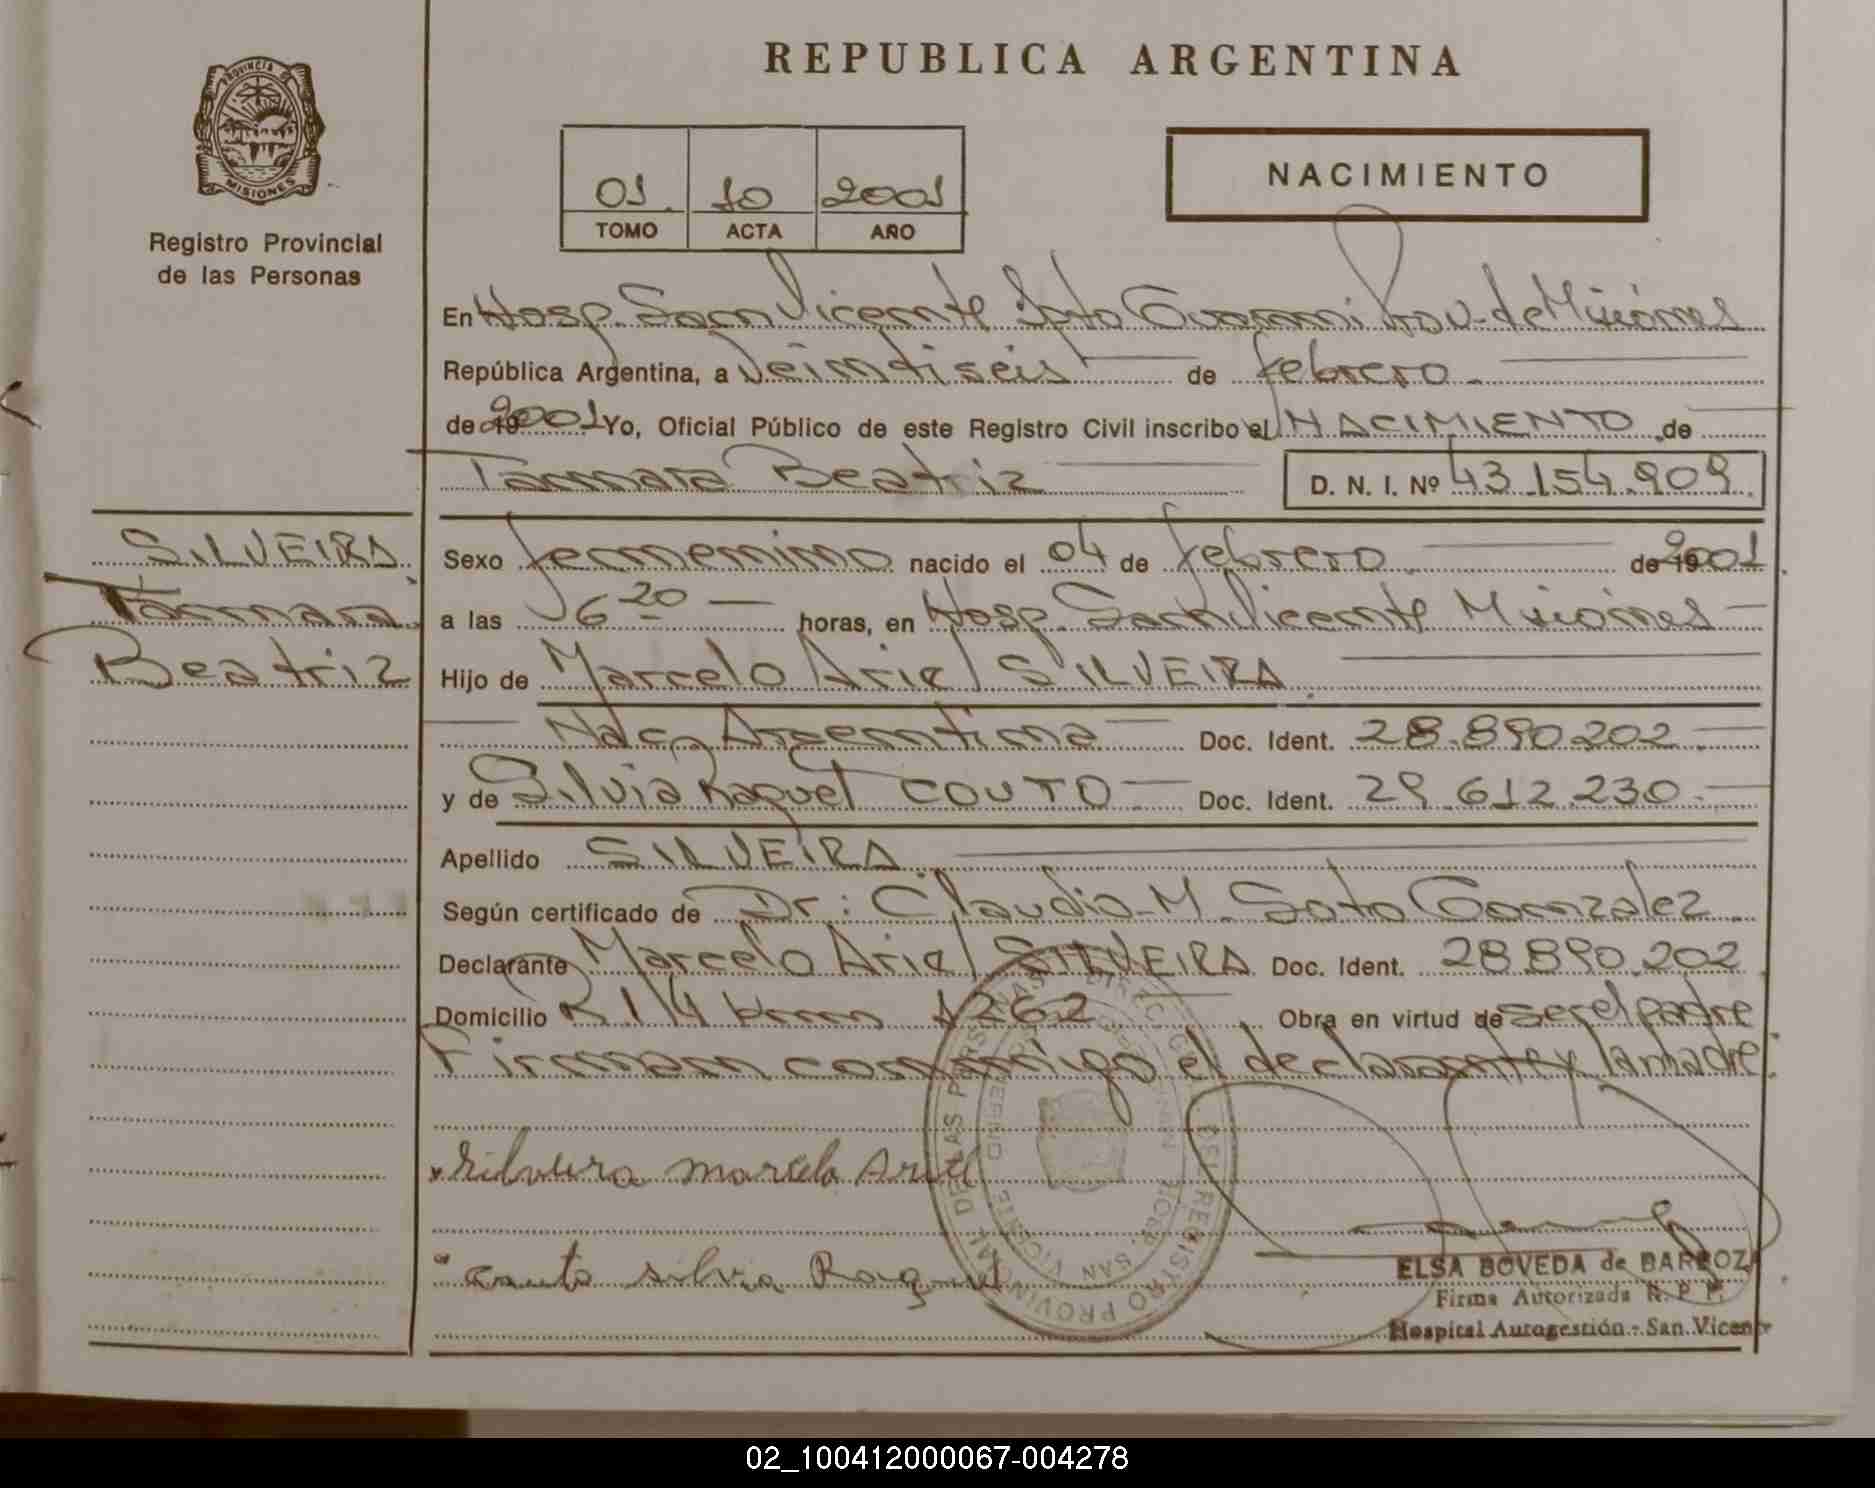 REPUBLICA ARGENTINA
PROVINCIA DE
MISIONES
Registro Provincial
de las Personas
01 10 2001
TOMO ACTA AÑO
NACIMIENTO
En Hosp. San Vicente Dpto Guarani Prov. de Misiones
República Argentina, a Veintiseis de febrero
de 19 2001 Yo, Oficial Público de este Registro Civil inscribo el NACIMIENTO de
Tamara Beatriz D. N. I. Nº 43.154.909
SILVEIRA
Tamara
Beatriz
Sexo femenino nacido el 04 de febrero de 19 2001
a las 6 20 horas, en Hosp. San Vicente Misiones
Hijo de Marcelo Ariel SILVEIRA
Nac. Argentina Doc. Ident. 28.890.202
y de Silvia Raquel COUTO Doc. Ident. 29.612.230
Apellido SILVEIRA
Según certificado de Dr: Claudio M. Soto Gonzalez
Declarante Marcelo Ariel SILVEIRA Doc. Ident. 28.890.202
Domicilio R 14 km 1262 Obra en virtud de ser el padre
Firman conmigo el declarante y la madre.
Silveira Marcelo Ariel
Couto Silvia Raquel
REGISTRO PROVINCIAL DE LAS PERSONAS
HOSP. SAN VICENTE
ELSA BOVEDA de BARBOZA
Firma Autorizada R. P. P.
Hospital Autogestión - San Vicente
02_100412000067-004278